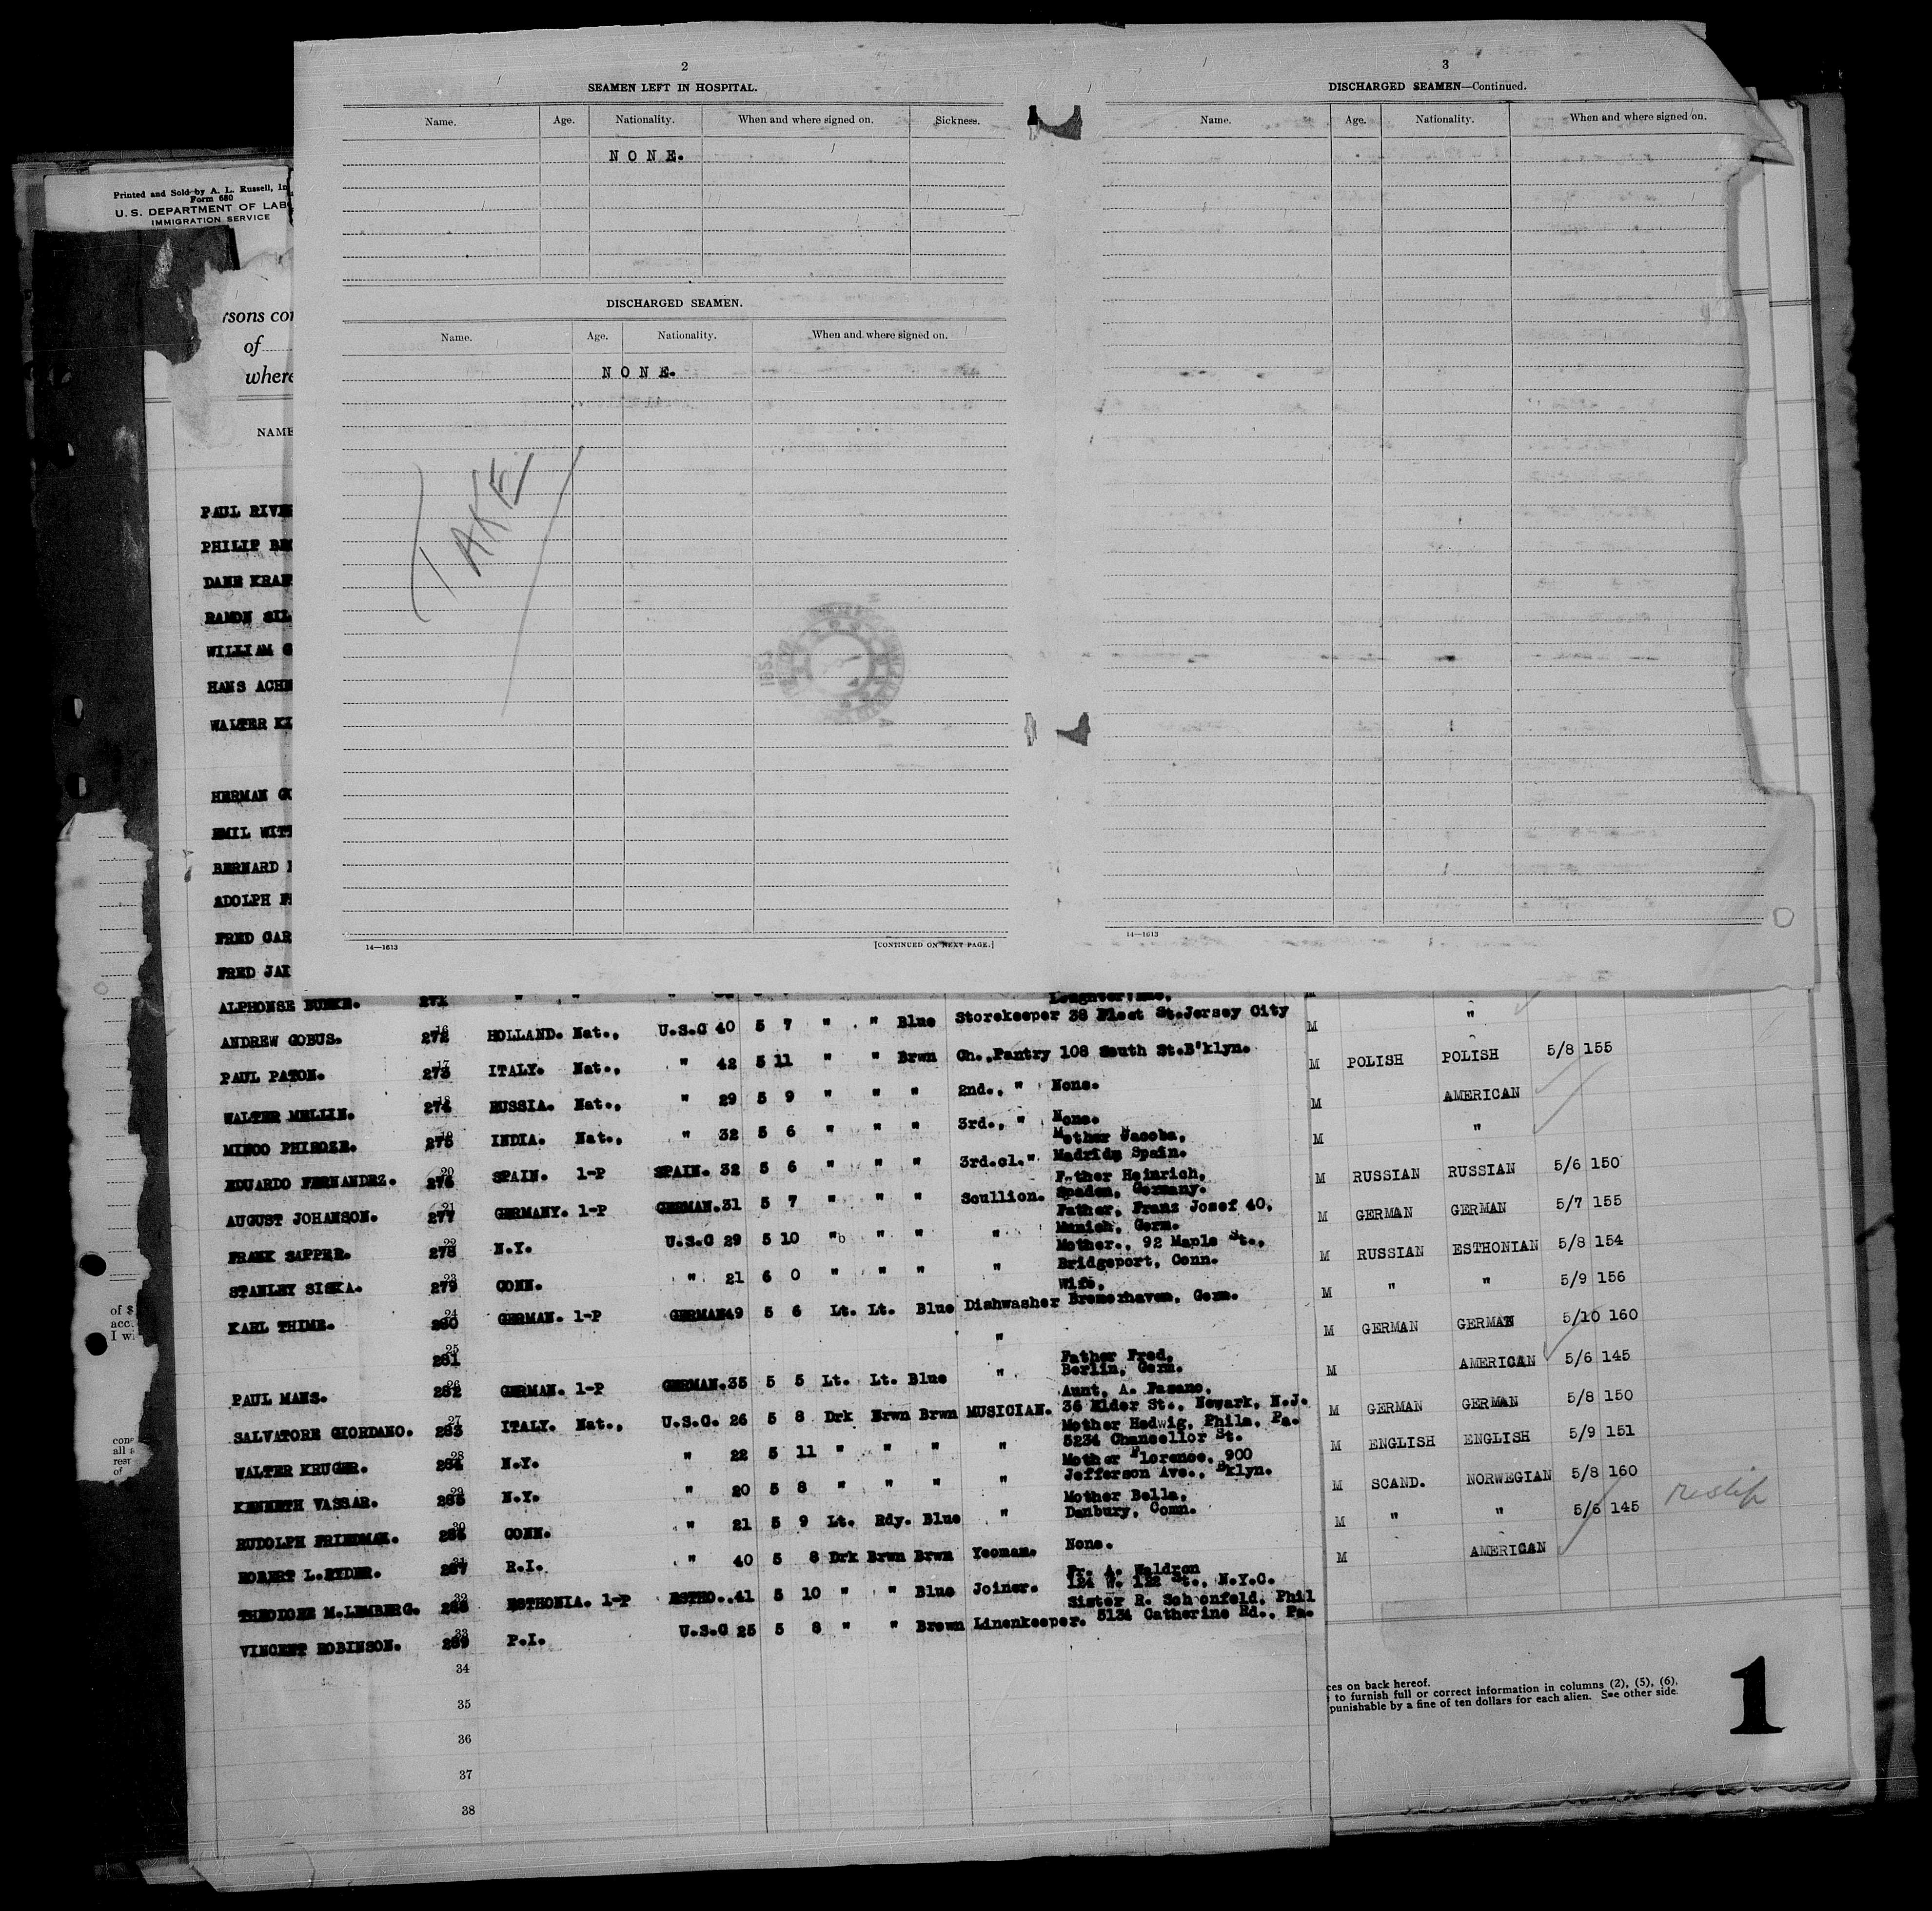 2
SEAMEN LEFT IN HOSPITAL.
Name. Age. Nationality. When and where signed on. Sickness.
NONE.
DISCHARGED SEAMEN.
Name. Age. Nationality. When and where signed on.
NONE.
TAKE
14—1613 [CONTINUED ON NEXT PAGE.]
3
DISCHARGED SEAMEN—Continued.
Name. Age. Nationality. When and where signed on.
14—1613
Printed and Sold by A. L. Russell, In
Form 680
U. S. DEPARTMENT OF LAB
IMMIGRATION SERVICE
rsons con
of
where
NAME
PAUL RIVE
PHILIP BE
DANE KRAN
RAMON SIL
WILLIAM G
HANS ACHN
WALTER KI
HERMAN GU
EMIL WITT
BERNARD
ADOLPH F
FRED CAR
FRED JAI
ALPHONSE 271 " "
ANDREW GOBUS. 16 272 HOLLAND. Nat., U.S.C 40 5 7 " " Blue Storekeeper 38 Fleet St. Jersey City
PAUL PATON. 17 273 ITALY. Nat., " 42 5 11 " " Brwn Ch., Pantry 108 South St. B'klyn.
WALTER MELLIN. 18 274 RUSSIA. Nat., " 29 5 9 " " " 2nd., " None.
MINOO PHIROZE. 19 275 INDIA. Nat., " 32 5 6 " " " 3rd., " None.
EDUARDO FERNANDEZ. 20 276 SPAIN. 1-P SPAIN. 32 5 6 " " " 3rd.cl." Mother Jacoba, Madrid, Spain.
AUGUST JOHANSON. 21 277 GERMANY. 1-P GERMAN. 31 5 7 " " " Scullion. Father Heinrich, Spaden, Germany.
FRANK SAPPER. 22 278 N.Y. U.S.C 29 5 10 " " " " Father, Franz Josef 40, Munich, Germ.
STANLEY SISKA. 23 279 CONN. " 21 6 0 " " " " Mother., 92 Maple St., Bridgeport, Conn.
KARL THIME. 24 280 GERMAN. 1-P GERMAN 49 5 6 Lt. Lt. Blue Dishwasher Wife, Bremerhaven, Germ.
25 281 "
PAUL MANS. 26 282 GERMAN. 1-P GERMAN. 35 5 5 Lt. Lt. Blue " Father Fred, Berlin, Germ.
SALVATORE GIORDANO. 27 283 ITALY. Nat., U.S.C. 26 5 8 Drk Brwn Brwn MUSICIAN. Aunt, A. Fasano, 36 Elder St., Newark, N.J.
WALTER KRUGER. 28 284 N.Y. " 22 5 11 " " " " Mother Hedwig, Phila, Pa. 5234 Chancellor St.
KENNETH VASSAR. 29 285 N.Y. " 20 5 8 " " " " Mother Florence, 900 Jefferson Ave., Bklyn.
RUDOLPH FRIEDMAN. 30 286 CONN. " 21 5 9 Lt. Rdy. Blue " Mother Bella, Danbury, Conn.
ROBERT L. RYDER. 31 287 R.I. " 40 5 8 Drk Brwn Brwn Yeoman. None.
THEODORE M. LEMBERG. 32 288 ESTHONIA. 1-P ESTHO.. 41 5 10 " " Blue Joiner. Fr. A. Waldron 124 W. 122 St., N.Y.C.
VINCENT ROBINSON. 33 289 P.I. U.S.C 25 5 8 " " Brown Linenkeeper. Sister R. Schonfeld, Phil 5134 Catherine Rd., Pa.
34
35
36
37
38
M "
M POLISH POLISH 5/8 155
M AMERICAN
M "
M RUSSIAN RUSSIAN 5/6 150
M GERMAN GERMAN 5/7 155
M RUSSIAN ESTHONIAN 5/8 154
M " " 5/9 156
M GERMAN GERMAN 5/10 160
M AMERICAN 5/6 145
M GERMAN GERMAN 5/8 150
M ENGLISH ENGLISH 5/9 151
M SCAND. NORWEGIAN 5/8 160
M " " 5/6 145
M AMERICAN
of $
acc.
I wi
cons
all a
resr
of
ces on back hereof.
to furnish full or correct information in columns (2), (5), (6),
punishable by a fine of ten dollars for each alien. See other side.
1